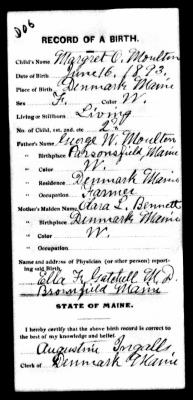 DOB
RECORD OF A BIRTH.
Child's Name Margret O. Moulton
Date of Birth June 16, 1893.
Place of Birth Denmark Maine
Sex F. Color W.
Living or Stillborn Living
No. of Child, 1st, 2nd, etc. 2nd
Father's Name George W. Moulton
" Birthplace Parsonsfield, Maine
" Color W.
" Residence Denmark Maine
" Occupation Farmer
Mother's Maiden Name Clara L. Bennett
" Birthplace Denmark Maine
" Color W.
" Occupation.
Name and address of Physician (or other person) report-
ing said Birth,
Ella F. Gatchell M.D.
Brownfield Maine
STATE OF MAINE.
I hereby certify that the above birth record is correct to
the best of my knowledge and belief.
Augustine Ingalls
Clerk of Denmark Maine